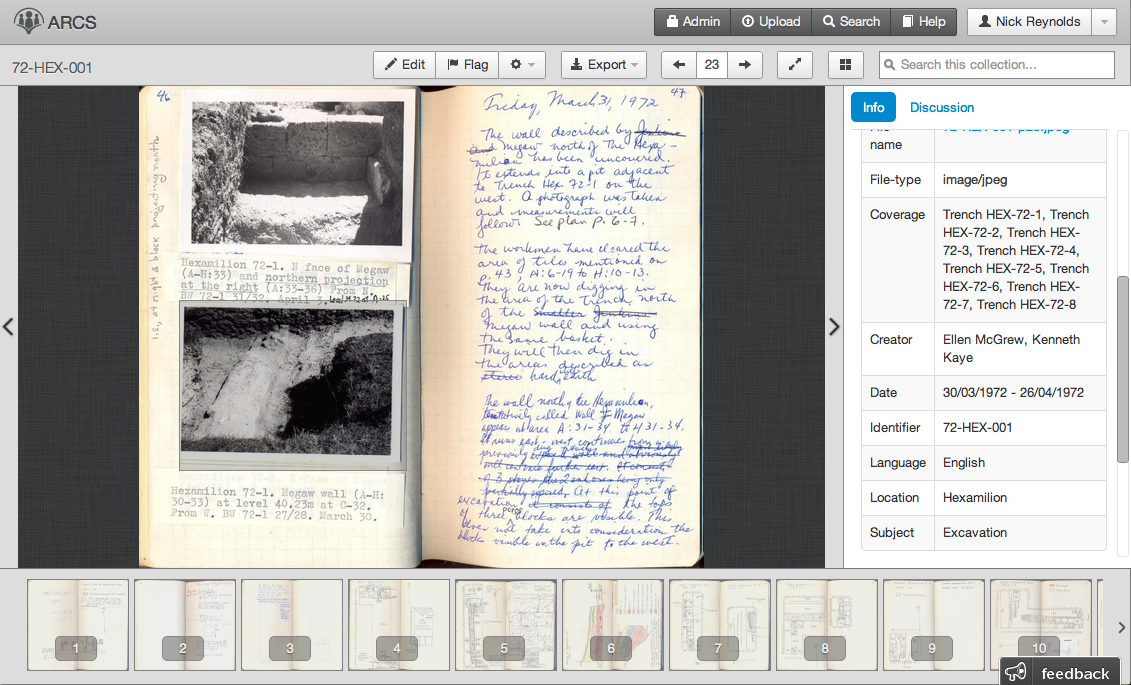 ARCS
Admin
Upload
Search
Help
Nick Reynolds
72-HEX-001
Edit
Flag
Export
23
Search this collection...
46
i.e., at right a block projecting north
Hexamilion 72-1. N face of Megaw
(A-H:33) and northern projection
at the right (A:33-36) From N.
BW 72-1 31/32. April 3.
Hexamilion 72-1. Megaw wall (A-H:
30-33) at level 40.23m at C-32.
From W. BW 72-1 27/28. March 30.
47
Friday, March 31, 1972
The wall described by Jenkins
and Megaw north of The Hexa-
milion has been uncovered.
It extends into a pit adjacent
to Trench Hex 72-1 on the
west. A photograph was taken
and measurements will
follow. See plan p. 6-7.
The workmen have cleared the
area of tiles mentioned on
p. 43, A:6-19 to H:10-13.
They are now digging in
the area of the trench north
of the Smaller Jenkins
Megaw wall and using
the same basket.
They will then dig in
the areas described as
hard earth
The wall north of the Hexamilion,
tentatively called Wall of Megaw
appears at area A:31-34 to H31-34.
It runs east-west, continues
previously
of 3 stones the 2 being only
partially exposed. At this point of
excavation it consists of the tops
of three poros blocks are visible. This
does not take into consideration the
blocks visible in the pit to the west.
Info
Discussion
name
File-type
image/jpeg
Coverage
Trench HEX-72-1, Trench
HEX-72-2, Trench HEX-
72-3, Trench HEX-72-4,
Trench HEX-72-5, Trench
HEX-72-6, Trench HEX-
72-7, Trench HEX-72-8
Creator
Ellen McGrew, Kenneth
Kaye
Date
30/03/1972 - 26/04/1972
Identifier
72-HEX-001
Language
English
Location
Hexamilion
Subject
Excavation
1
2
3
4
5
6
7
8
9
10
feedback